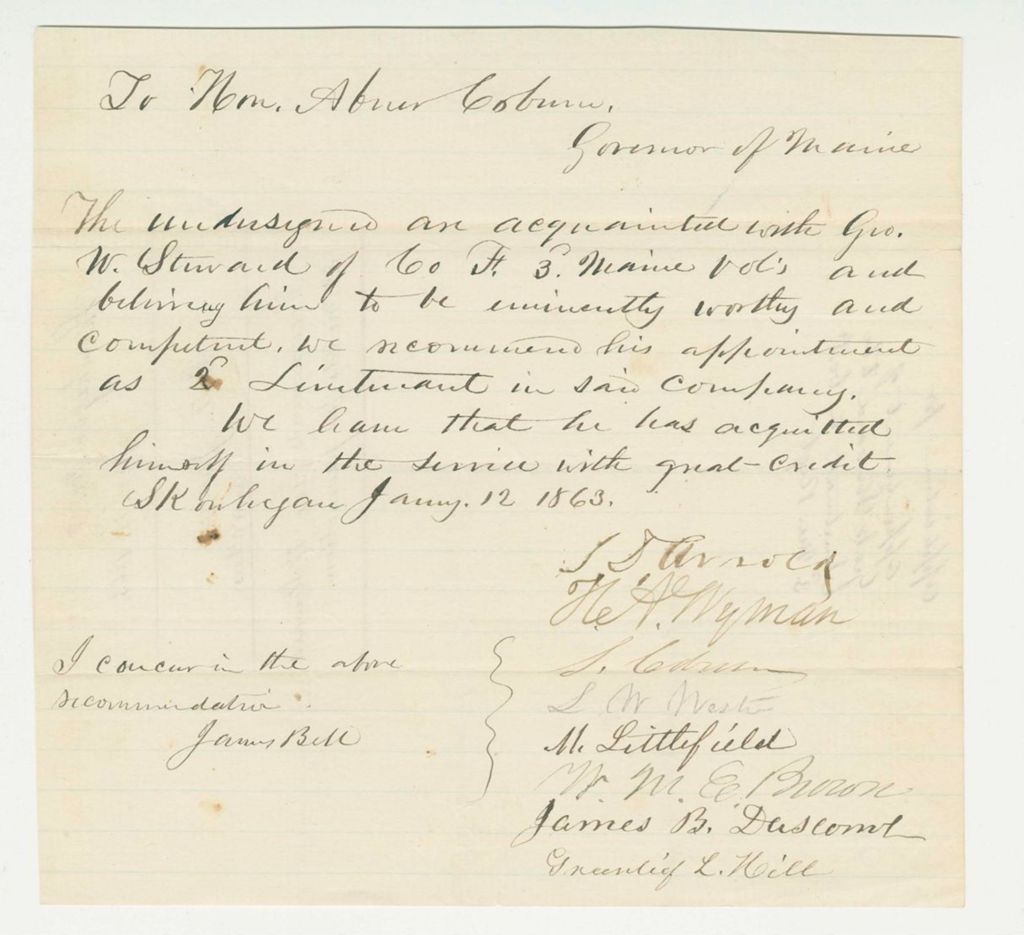 To Hon. Abner Coburn,
Governor of Maine
The undersigned are acquainted with Geo.
W. Steward of Co F. 3. Maine Vol's and
believing him to be eminently worthy and
competent. We recommend his appointment
as 2d Lieutenant in said company.
We learn that he has acquitted
himself in the service with great credit.
Skowhegan Jany. 12 1863.
S D Arnold
H. A. Wyman
I concur in the above
recommendation.
James Bell
S. Coburn
L W Weston
M. Littlefield
W. M. E. Brown
James B. Dascomb
Greenlief L. Hill